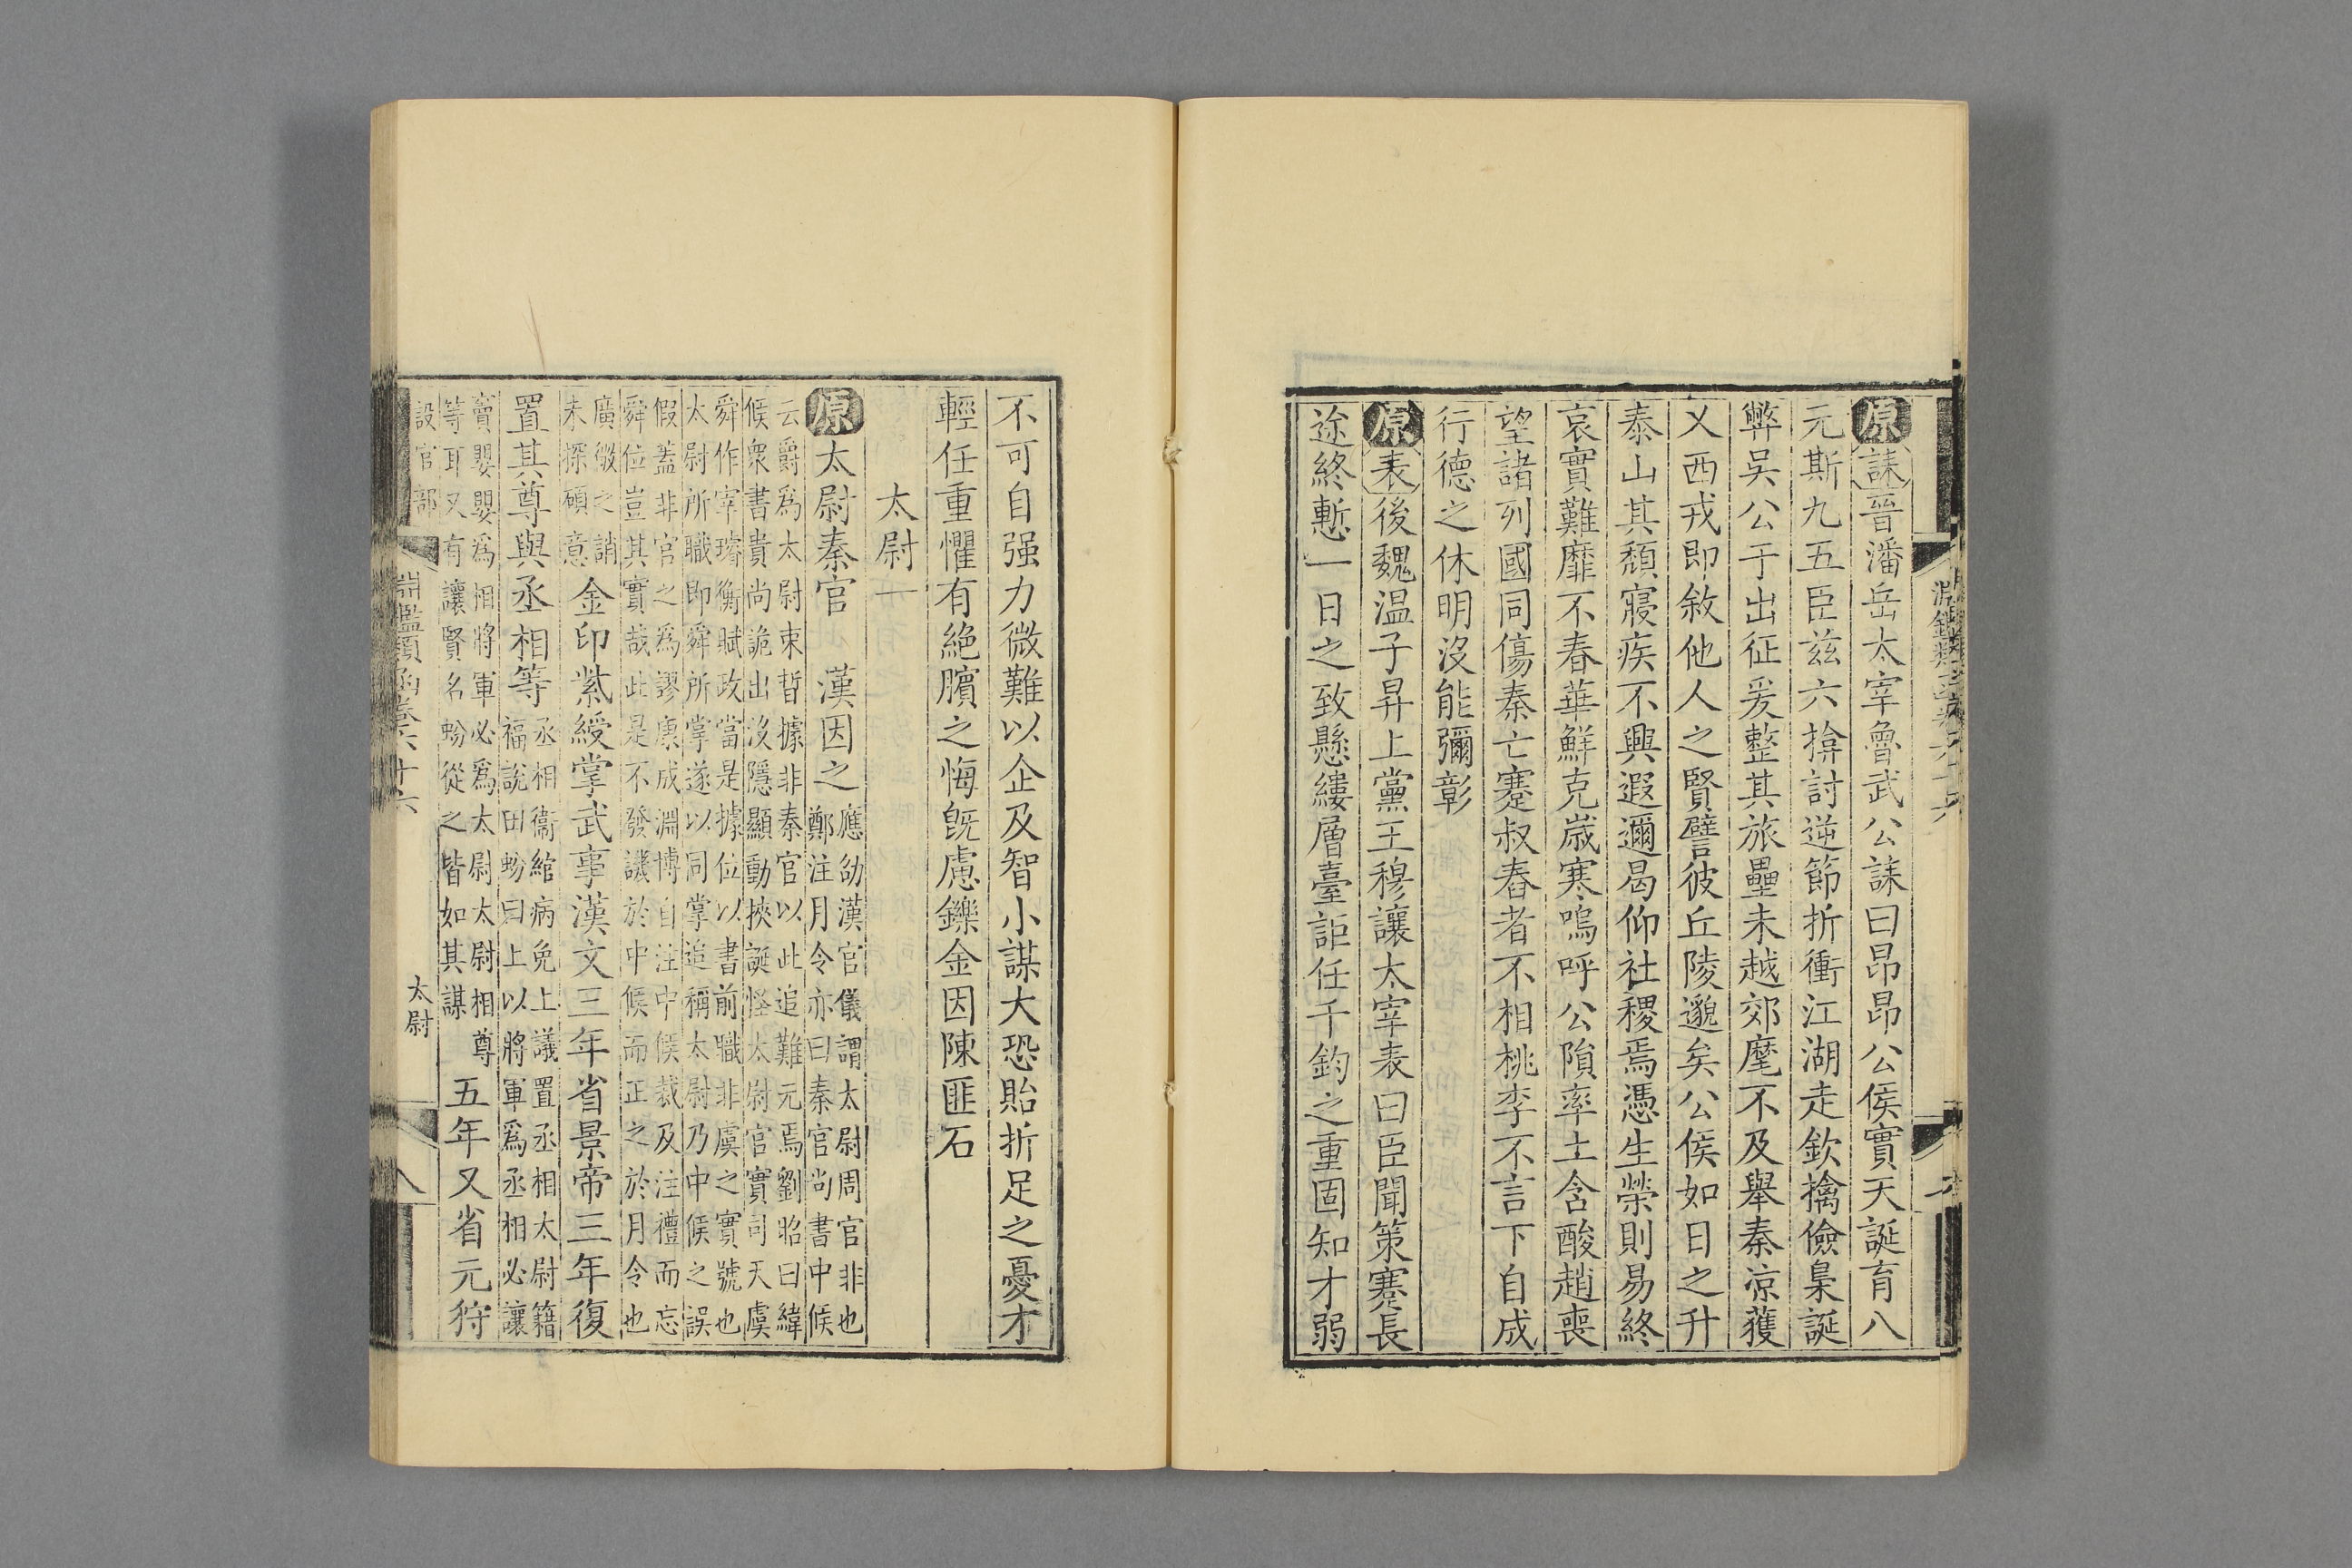 原誄晉潘岳太宰魯武公誄曰昂昂公侯實天誕育八
元斯九五臣兹六揜討逆節折衝江湖走欽擒儉梟誕
弊吳公于出征爰整其旅壘未越郊麾不及舉秦凉獲
乂西戎即敘他人之賢譬彼丘陵邈矣公侯如日之升
泰山其頹寢疾不興遐邇曷仰社稷焉憑生榮則易終
哀實難靡不春華鮮克歲寒嗚呼公隕率土含酸趙喪
望諸列國同傷秦亡蹇叔舂者不相桃李不言下自成
行德之休明沒能彌彰
原表後魏温子昇上黨王穆讓太宰表曰臣聞策蹇長
途終慙一日之致懸縷層臺詎任千鈞之重固知才弱
不可自强力微難以企及智小謀大恐貽折足之憂才
輕任重懼有絶臏之悔旣慮鑠金因陳匪石
太尉一
原太尉秦官 漢因之應劭漢官儀謂太尉周官非也
鄭注月令亦曰秦官尚書中候
云爵為太尉束晳據非秦官以此追難元焉劉昭曰緯
候衆書貴尚詭出沒隱顯動挾誕怪太尉官實司天虞
舜作宰璿衡賦政當是據位以書前職非虞之實號也
太尉所職即舜所掌遂以同掌追稱太尉乃中候之誤
假蓋非官之為謬康成淵博自注中候裁及注禮而忘
舜位豈其實哉此是不發譏於中候而正之於月令也
廣微之誚
未探碩意金印紫綬掌武事漢文三年省景帝三年復
置其尊與丞相等丞相衞綰病免上議置丞相太尉籍
福說田蚡曰上以將軍為丞相必讓
竇嬰嬰為相將軍必為太尉太尉相尊
等耳又有讓賢名蚡從之皆如其謀五年又省元狩
設官部
淵鑑類函卷六十六
太尉
八